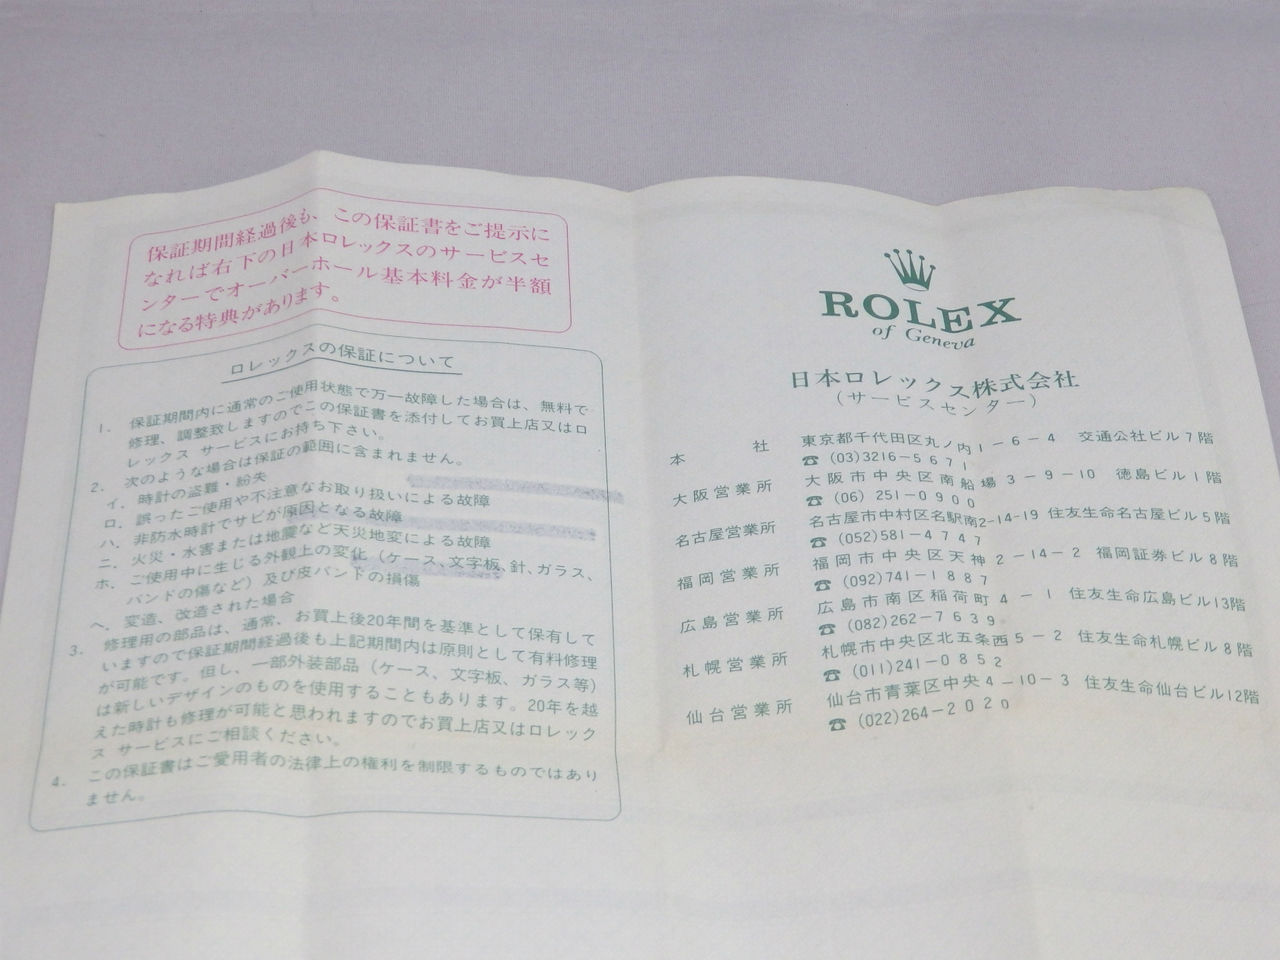 保証期間経過後も、この保証書をご提示に
なれば右下の日本ロレックスのサービスセ
ンターでオーバーホール基本料金が半額
になる特典があります。
ロレックスの保証について
1. 保証期間内に通常のご使用状態で万一故障した場合は、無料で
修理、調整致しますのでこの保証書を添付してお買上店又はロ
レックス サービスにお持ち下さい。
2. 次のような場合は保証の範囲に含まれません。
イ. 時計の盗難・紛失
ロ. 誤ったご使用や不注意なお取り扱いによる故障
ハ. 非防水時計でサビが原因となる故障
ニ. 火災・水害または地震など天災地変による故障
ホ. ご使用中に生じる外観上の変化（ケース、文字板、針、ガラス、
バンドの傷など）及び皮バンドの損傷
ヘ. 変造、改造された場合
3. 修理用の部品は、通常、お買上後20年間を基準として保有して
いますので保証期間経過後も上記期間内は原則として有料修理
が可能です。但し、一部外装部品（ケース、文字板、ガラス等）
は新しいデザインのものを使用することもあります。20年を越
えた時計も修理が可能と思われますのでお買上店又はロレック
ス サービスにご相談ください。
4. この保証書はご愛用者の法律上の権利を制限するものではあり
ません。
ROLEX
of Geneva
日本ロレックス株式会社
（サービスセンター）
本社 東京都千代田区丸ノ内1-6-4 交通公社ビル7階
☎ (03)3216-5671
大阪営業所 大阪市中央区南船場3-9-10 徳島ビル1階
☎ (06) 251-0900
名古屋営業所 名古屋市中村区名駅南2-14-19 住友生命名古屋ビル5階
☎ (052)581-4747
福岡営業所 福岡市中央区天神2-14-2 福岡証券ビル8階
☎ (092)741-1887
広島営業所 広島市南区稲荷町4-1 住友生命広島ビル13階
☎ (082)262-7639
札幌営業所 札幌市中央区北五条西5-2 住友生命札幌ビル8階
☎ (011)241-0852
仙台営業所 仙台市青葉区中央4-10-3 住友生命仙台ビル12階
☎ (022)264-2020